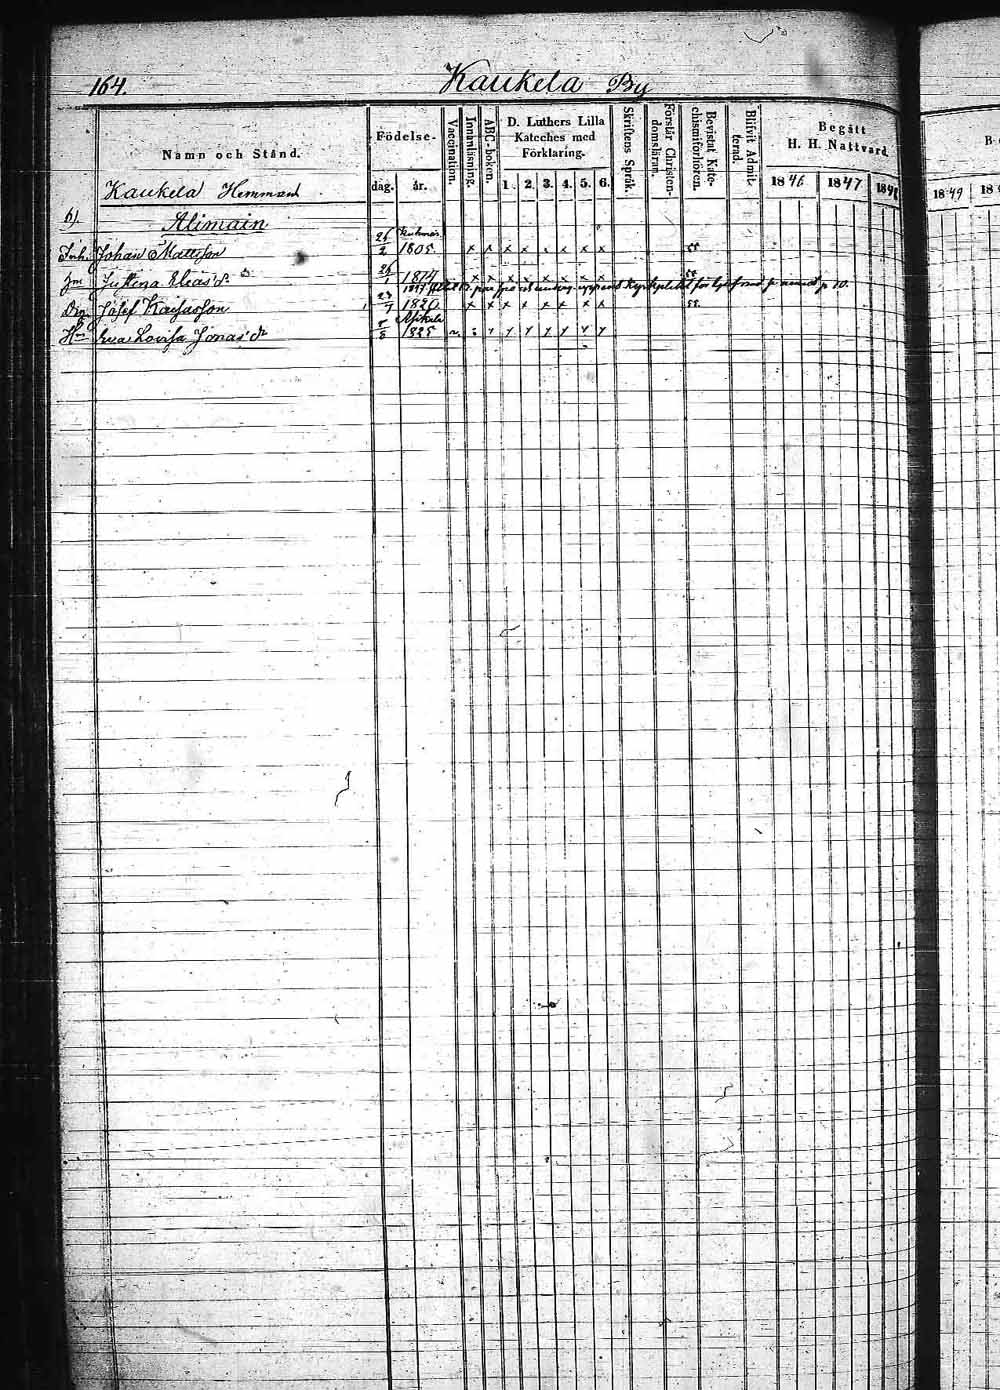 164. Kaukela By
Namn och Stånd.
Födelse-
dag. år.
Vaccination.
Innanläsning.
ABC-boken.
D. Luthers Lilla
Kateches med
Förklaring.
1. 2. 3. 4. 5. 6.
Skriftens Språk.
Förstår Christen-
domsläran.
Bevistat Kate-
chismiförhören.
Blifvit Admit-
terad.
Begått
H. H. Nattvard.
1846 1847 1848
1849 18
Kaukela Hemman
6)
Alimain
Inh. Johan Mattsson 26/2 1805 x x x x x x x x 55
Justina Elias d:r 26/1 x x x x x x x x 55
Drg Josef 23/7 1820 x x x x x x x x 55
Hu Eva Lovisa Jonas d:r 5/8 1825